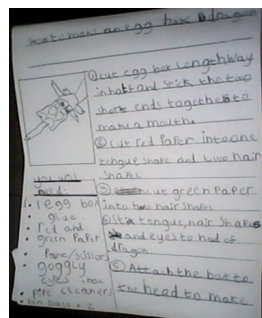 How to make an egg box dragon
① cut egg box Length Way
in half and stick the two
short ends together to
make a mouth
② cut red Paper into one
tongue shape and two hair
shapes
③ cut green Paper
into two hair shapes
④ Stick tongue, hair Shapes
and eyes to head of
dragon.
⑤ Attach the box to
the head to make
you will
need:
• 1 egg box
• glue
• red and
green Paper
• googly
eyes
• pipe cleaners